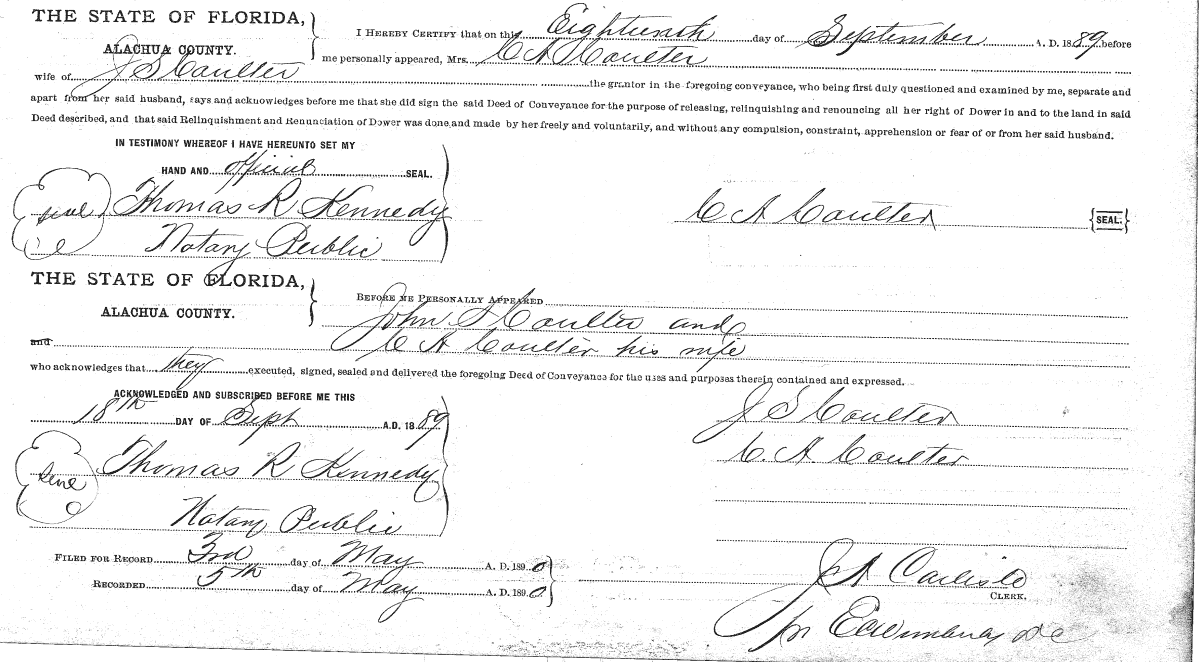 THE STATE OF FLORIDA,
ALACHUA COUNTY.
I HEREBY CERTIFY that on this Eighteenth day of September A. D. 1889 before
me personally appeared, Mrs. C A Coulter
wife of J S Coulter the grantor in the foregoing conveyance, who being first duly questioned and examined by me, separate and
apart from her said husband, says and acknowledges before me that she did sign the said Deed of Conveyance for the purpose of releasing, relinquishing and renouncing all her right of Dower in and to the land in said
Deed described, and that said Relinquishment and Renunciation of Dower was done and made by her freely and voluntarily, and without any compulsion, constraint, apprehension or fear of or from her said husband.
IN TESTIMONY WHEREOF I HAVE HEREUNTO SET MY
HAND AND official SEAL.
seal Thomas R Kennedy
Notary Public
C A Coulter {SEAL.}
THE STATE OF FLORIDA,
ALACHUA COUNTY.
BEFORE ME PERSONALLY APPEARED
John S Coulter and
and C A Coulter his wife
who acknowledges that they executed, signed, sealed and delivered the foregoing Deed of Conveyance for the uses and purposes therein contained and expressed.
ACKNOWLEDGED AND SUBSCRIBED BEFORE ME THIS
18th DAY OF Sept A.D. 1889
Thomas R Kennedy
Notary Public
J S Coulter
C. A. Coulter
FILED FOR RECORD 3rd day of May A. D. 1890
RECORDED 5th day of May A. D. 1890
J A Carlisle
CLERK.
pr